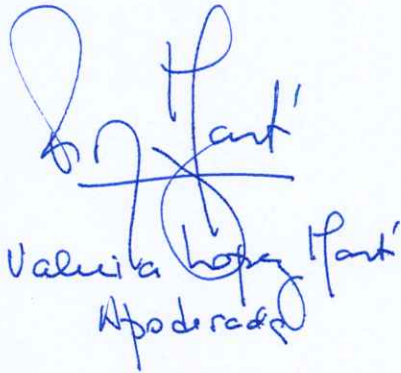 Martí
Valencia López Martí
Apoderada